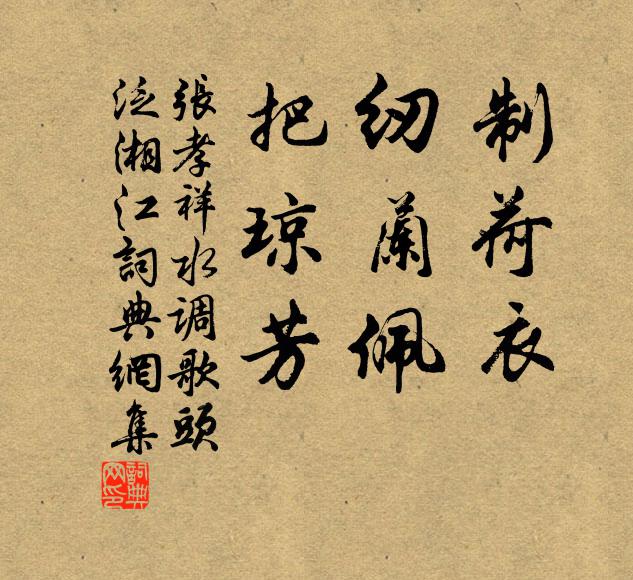 制荷衣
纫蘭佩
把琼芳
張孝祥水调歌頭
泛湘江詞典網集
詞典网印